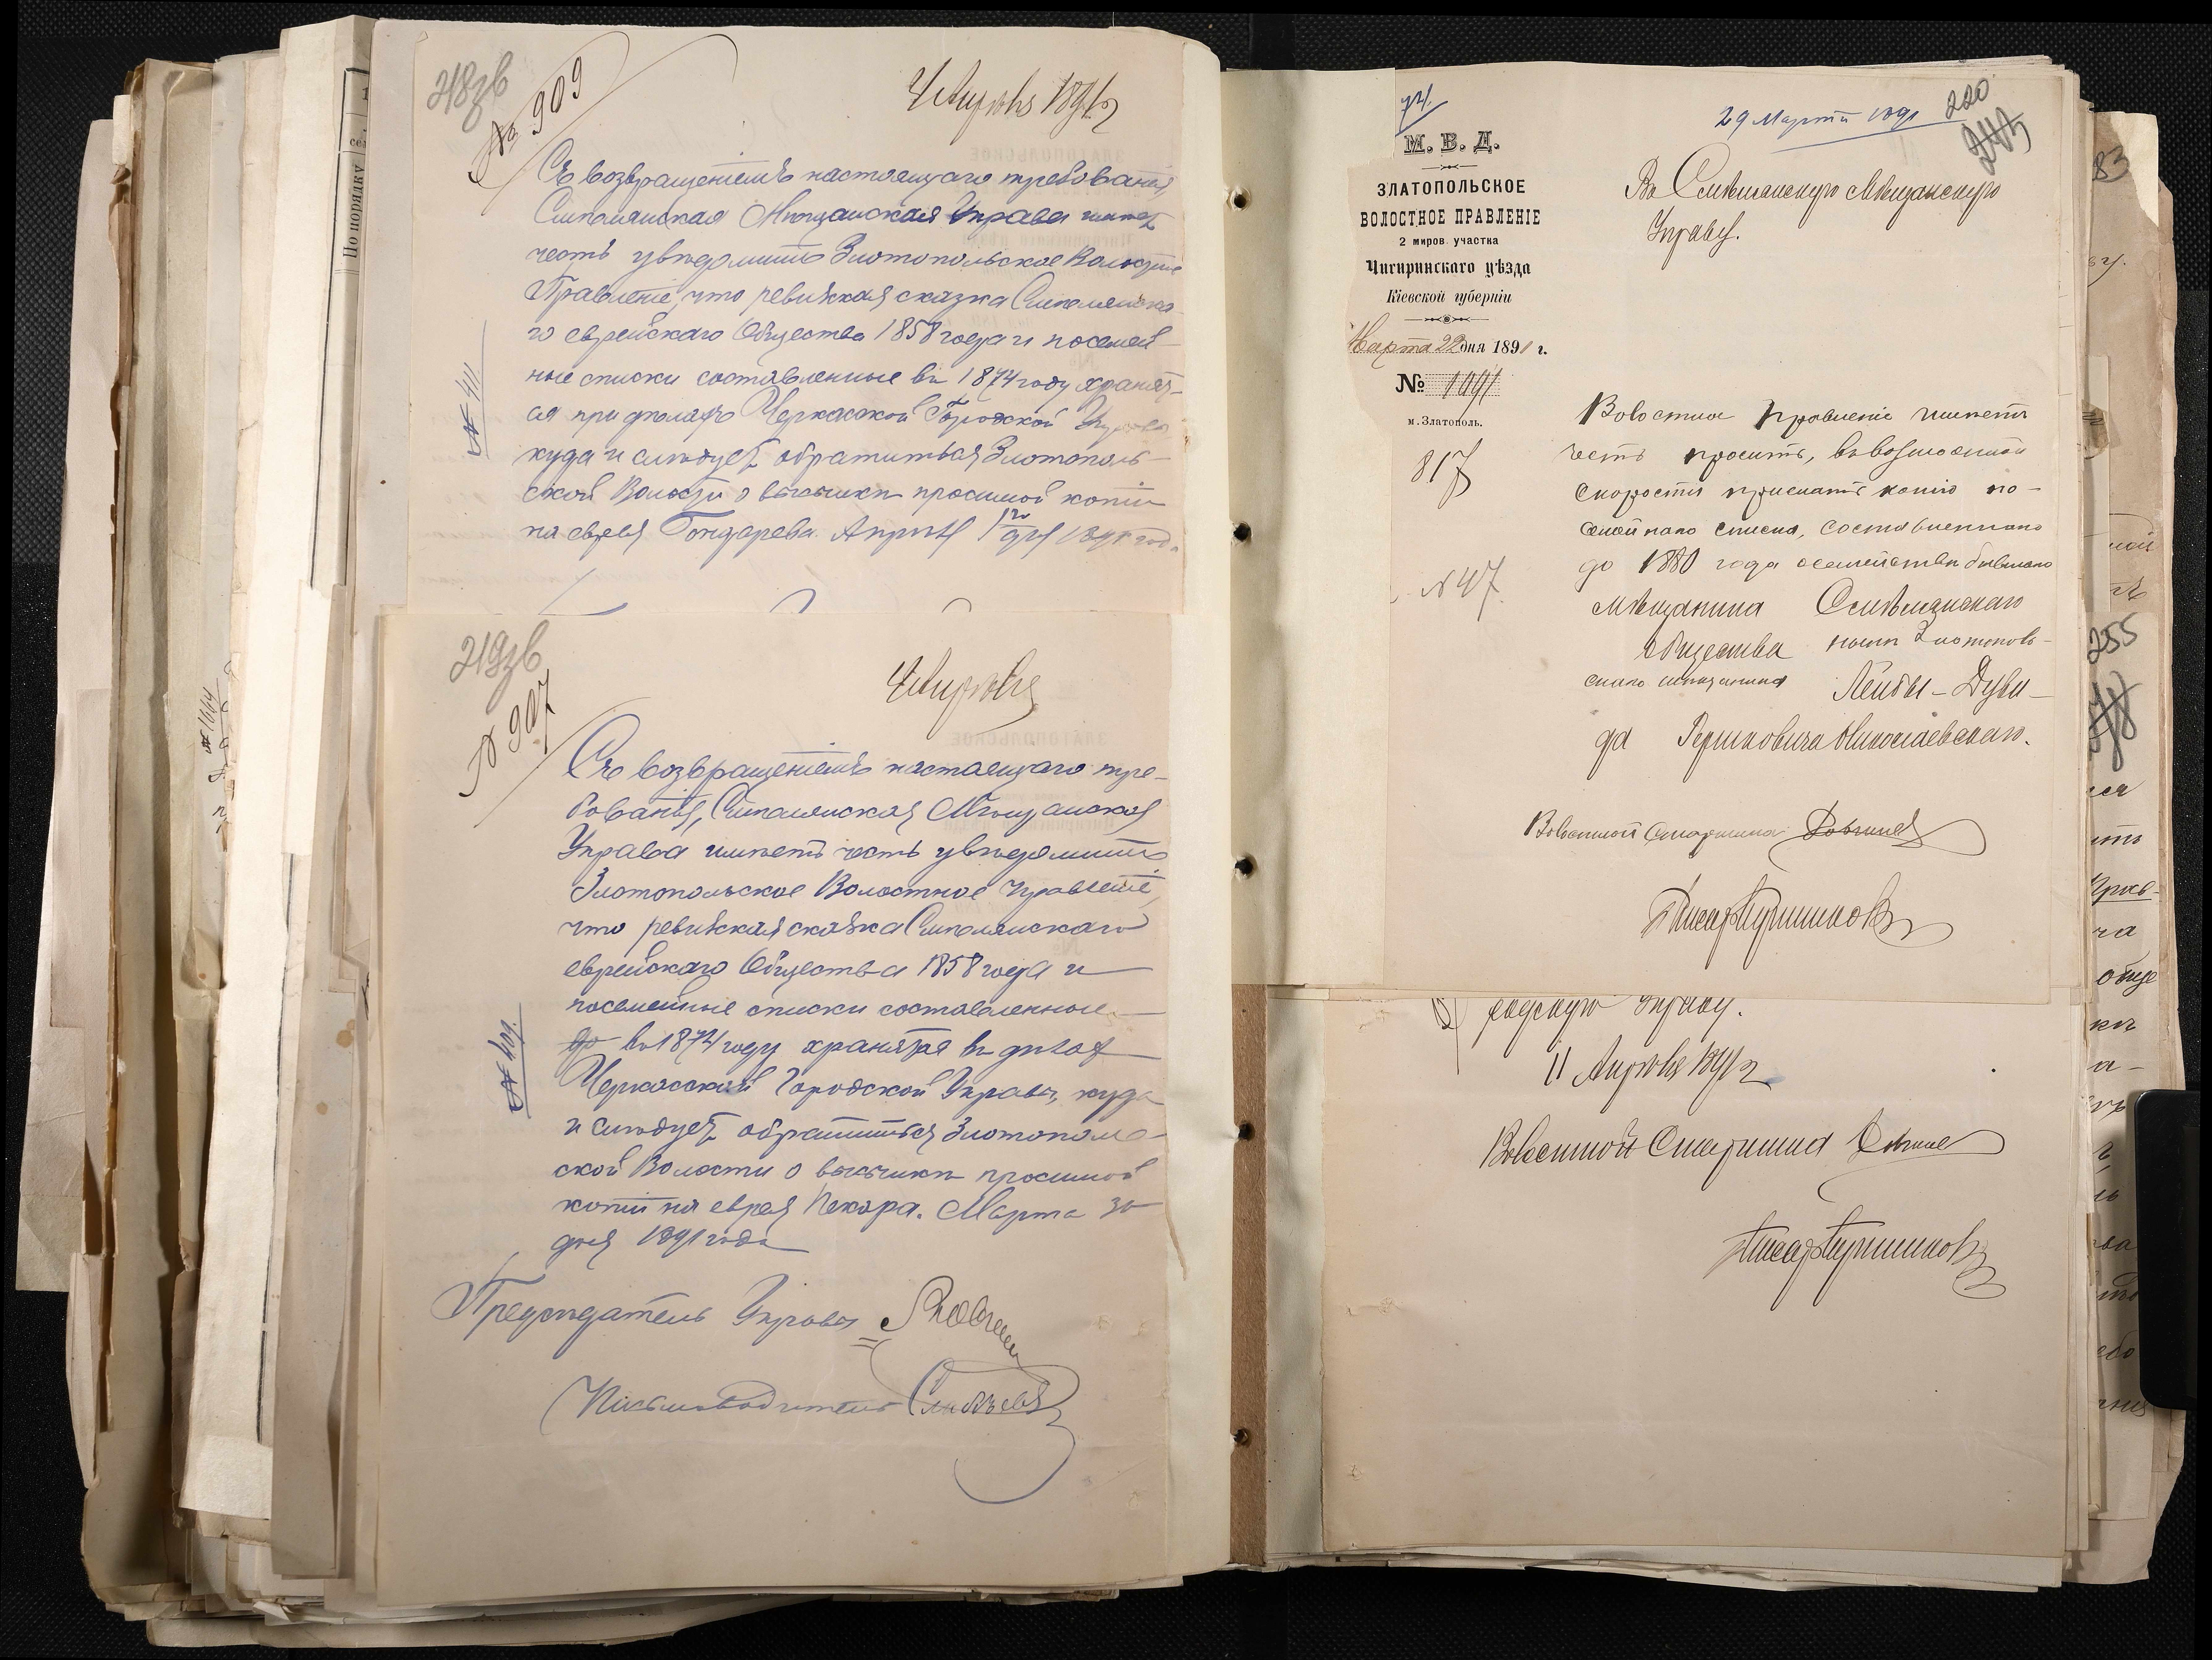 218зв
№ 909
4 Апрѣля 1891 г
Съ возвращеніемъ настоящаго требованія,
Смѣлянская Мѣщанская Управа имѣетъ
честь увѣдомить Златопольское Волостное
Правленіе, что ревизская сказка Смѣлянска-
го еврейскаго Общества 1858 года и посемей-
ные списки составленные въ 1874 году хранят-
ся при дѣлахъ Черкасской Городской Управы
куда и слѣдуетъ обратиться Златополь-
ской Волости о высылкѣ просимой копіи
на еврея Гондарева. Апрѣля 1го дня 1891 года
№ 411
219зв
№ 907
4 Апрѣля
Съ возвращеніемъ настоящаго тре-
бованія, Смѣлянская Мѣщанская
Управа имѣетъ честь увѣдомить
Златопольское Волостное правленіе,
что ревизская сказка Смѣлянскаго
еврейскаго Общества 1858 года и
посемейные списки составленные
въ 1874 году хранятся въ дѣлах
Черкасской Городской Управы, куда
и слѣдуетъ обратиться Златополь-
ской Волости о высылкѣ просимой
копіи на еврея Пекаря. Марта 30
дня 1891 года
№ 409.
Предсѣдатель Управы
Письмоводитель
По порядку
№ 1664
29 Марта 1891
220
М. В. Д.
ЗЛАТОПОЛЬСКОЕ
ВОЛОСТНОЕ ПРАВЛЕНІЕ
2 миров. участка
Чигиринскаго уѣзда
Кіевской губерніи
Марта 22 дня 1891 г.
№ 1091
м. Златополь.
817
№ 47
Въ Смѣлянскую Мѣщанскую
Управу.
Волостное Правленіе имѣетъ
честь просить, въ возможной
скорости прислать копію по-
семейнаго списка, составленнаго
до 1880 года о семействѣ бывшаго
мѣщанина Смѣлянскаго
общества нынѣ Златополь-
скаго мѣщанина Лейбы-Дуви-
да Гершковича Николаевскаго.
Волостной Старшина
Писарь
родскую Управу.
11 Апрѣля 1891 г.
Волостной Старшина
Писарь
83
255